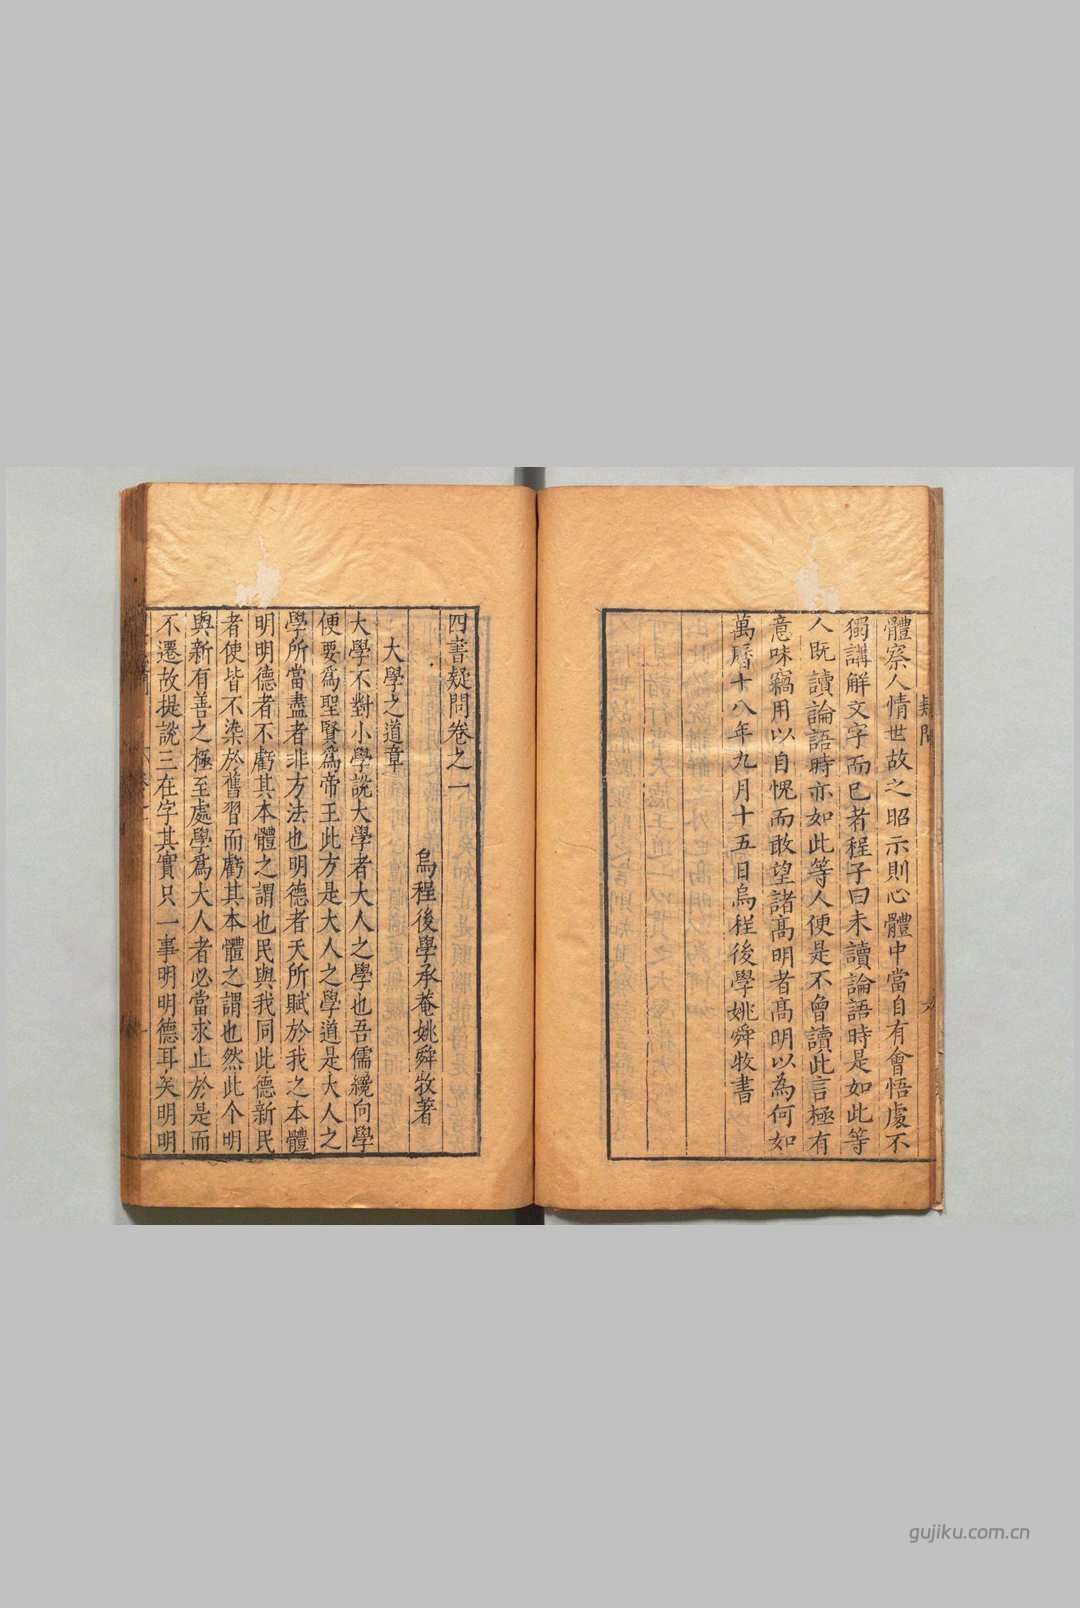 體察人情世故之昭示則心體中當自有會悟處不
獨講解文字而已者程子曰未讀論語時是如此等
人既讀論語時亦如此等人便是不曾讀此言極有
意味竊用以自愧而敢望諸高明者高明以為何如
萬曆十八年九月十五日烏程後學姚舜牧書
四書疑問卷之一
烏程後學承菴姚舜牧著
大學之道章
大學不對小學說大學者大人之學也吾儒纔向學
便要爲聖賢爲帝王此方是大人之學道是大人之
學所當盡者非方法也明德者天所賦於我之本體
明明德者不虧其本體之謂也民與我同此德新民
者使皆不染於舊習而虧其本體之謂也然此个明
與新有善之極至處學爲大人者必當求止於是而
不遷故提說三在字其實只一事明明德耳矣明明
gujiku.com.cn